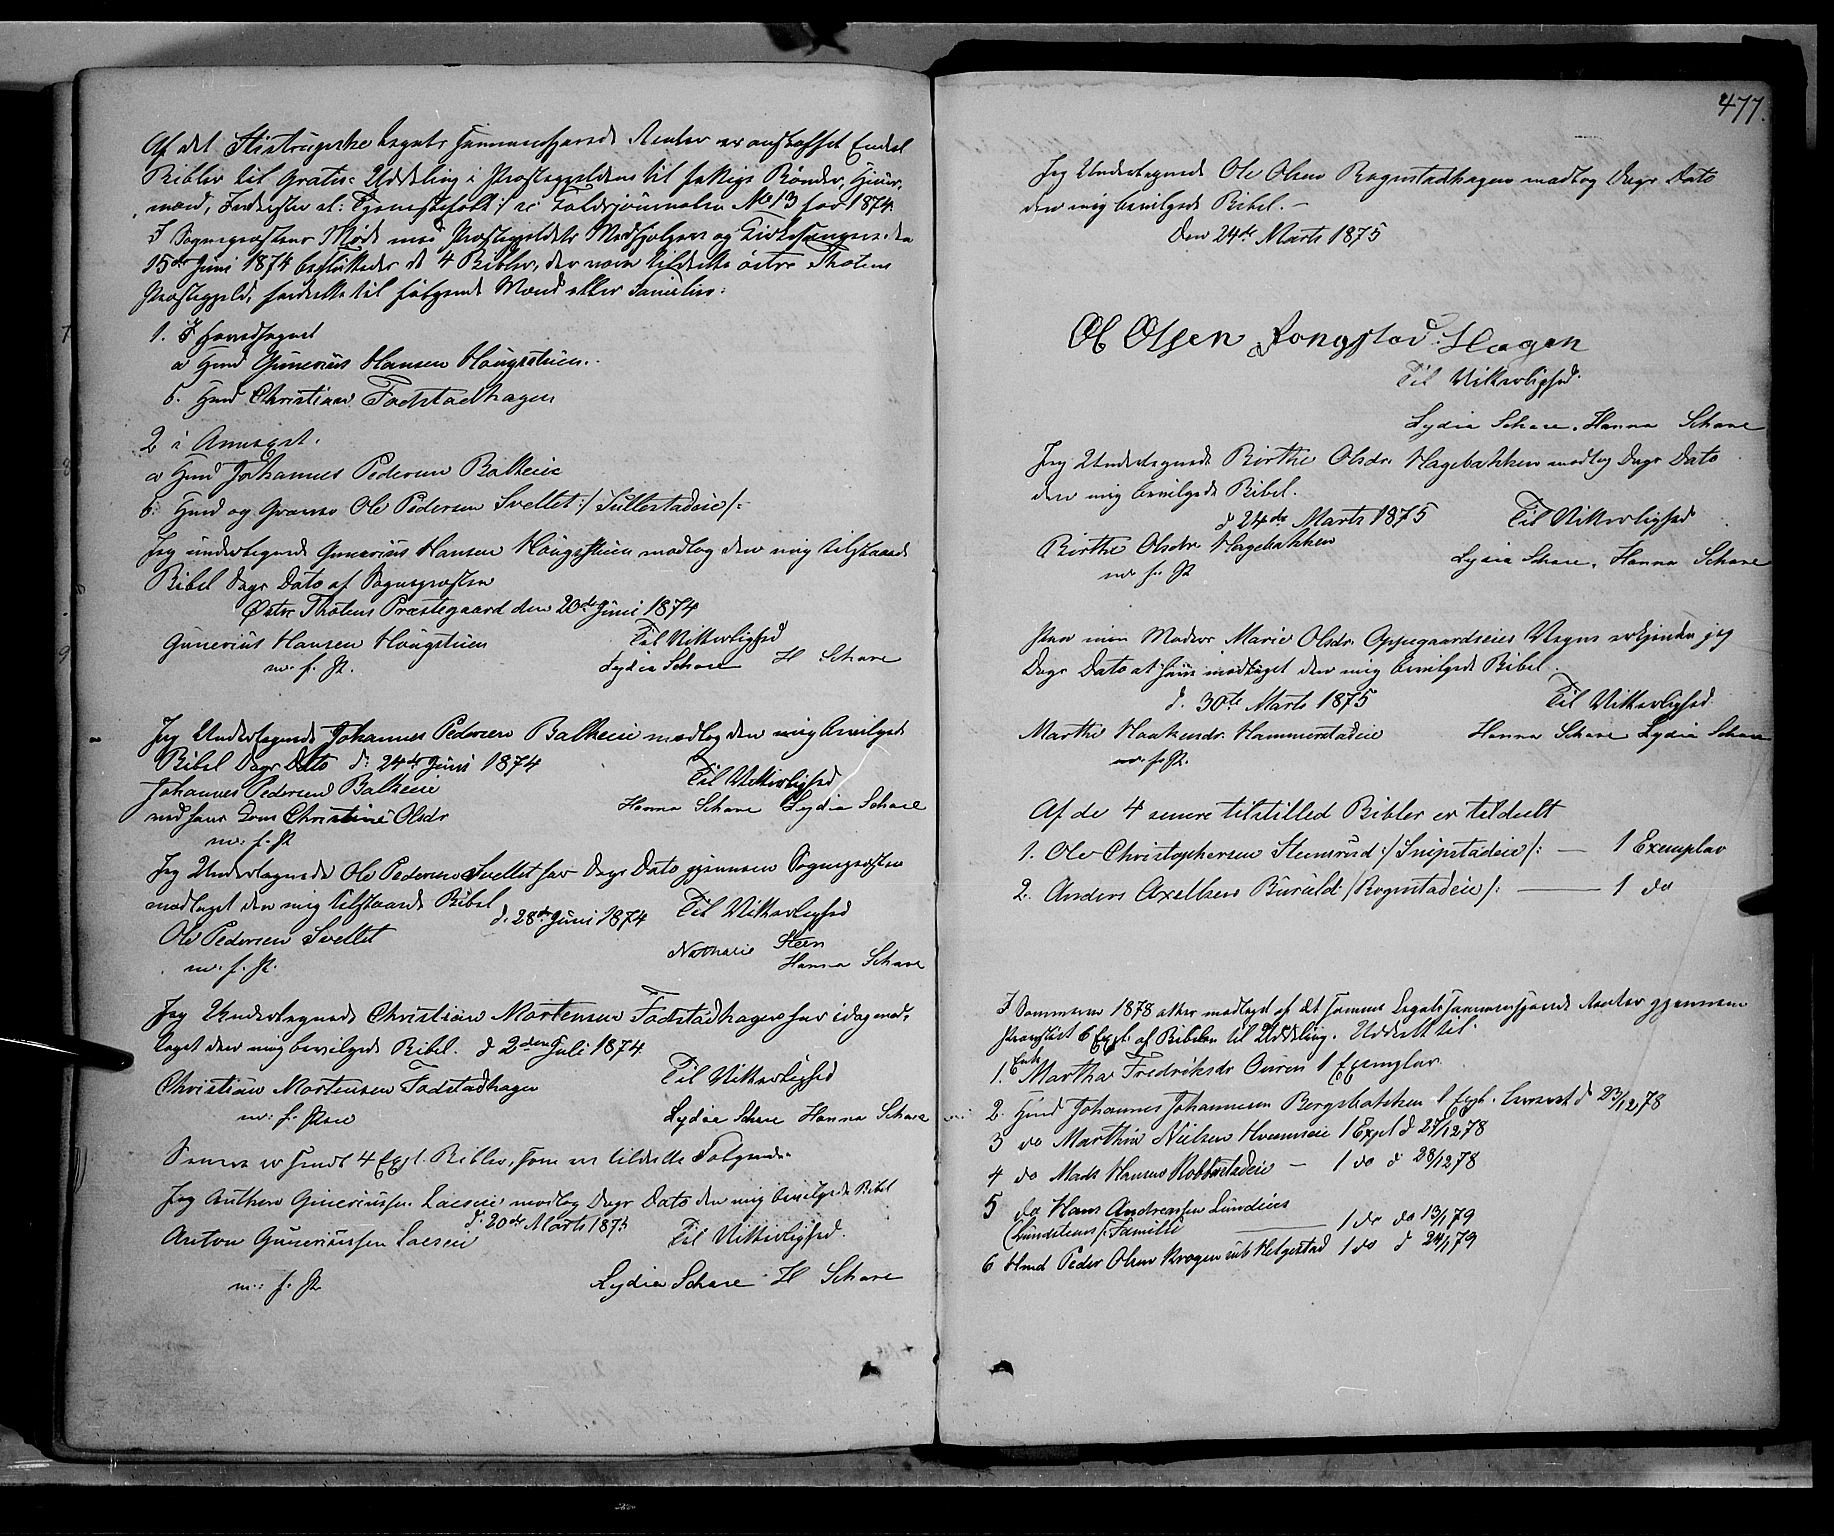 Af det Stistrupske Legats sammensparede Renter er anskaffet Endel
Bibler til Gratis-Uddeling i Præstegjeldene til fattige Bønder, Huus-
mænd, Inderster ell: Tjenestefolk :/ se Foldsjournalen No 13 for 1874.
I Sognepræstens Møde med Præstegjeldets Medhjælpere og Kirkesangere den
15de Juni 1874 besluttedes de 4 Bibler, der vare tildelte østre Thotens
Præstegjeld, fordelte til følgende Mænd eller Familier:
1. I Hovedsognet
a Hmd Gunerius Hansen Haugstuen.
b. Hmd Christian Fodstadhagen
2 i Annexet.
a Hmd Johannes Pedersen Balkeie
b. Hmd og Ole Pedersen Svellet :/ Sullestadeie /:
Jeg undertegnede Gunerius Hansen Haugstuen modtog den mig tilstaaede
Bibel Dags Dato af Sognepræsten
Østre Thotens Præstegaard den 20de Juni 1874
Gunerius Hansen Haugstuen
m. f. P.
Til Vitterlighed
Lydia Schare H Schare
Jeg Undertegnede Johannes Pedersen Balkeie modtog den mig bevilgede
Bibel Dags Dato d: 24de Juni 1874
Johannes Pedersen Balkeie
ved hans Kone Christine Olsdr
m. f. P
Til Vitterlighed
Hanna Schare Lydia Schare
Jeg Undertegnede Ole Pedersen Svellet har Dags Dato gjennem Sognepræsten
modtaget den mig tilstaaede Bibel
d. 28de Juni 1874
Ole Pedersen Svellet
m. f. P.
Til Vitterlighed
Nathalie Steen
Hanna Schare
Jeg Undertegnede Christian Mortensen Fodstadhagen har idag mod-
taget den mig bevilgede Bibel. d 2den Juli 1874.
Christian Mortensen Fodstadhagen
m. f. Pen
Til Vitterlighed
Lydia Schare Hanna Schare
Senere er sendt 4 Expl. Bibler, som ere tildelte Følgende
Jeg Anthon Guneriussen Laeseie modtog Dags Dato den mig bevilgede Bibel
d. 20de Marts 1875
Anton Guneriussen Laeseie
m. f. P
Til Vitterlighed.
Lydia Schare H Schare
477.
Jeg Undertegnede Ole Olsen Rognstadhagen modtog Dags Dato
den mig bevilgede Bibel. –
den 24de Marts 1875
Ol Olsen Rongstad Hagen
Til Vitterlighed.
Lydia Schare. Hanna Schare
Jeg Undertegnede Birthe Olsdr. Hagebakken modtog Dags Dato
den mig bevilgede Bibel.
d 24de Marts 1875
Birthe Olsdr. Hagebakken
m. f. P
Til Vitterlighed
Lydia Schare. Hanna Schare
Paa min Moders Marie Olsdr. Oppegaardseies Vegne erkjender jeg
Dags Dato at have modtaget den mig bevilgede Bibel.
d. 30te Marts 1875
Marthe Haakensdr. Hammerstadeie
m. f. P.
Til Vitterlighed
Hanna Schare Lydia Schare
Af de 4 senere tilstilled Bibler er tildeelt
1. Ole Christophersen Stemsrud :/ Snipstadeie /: — 1 Exemplar
2. Anders Axelsen Buruld / Rognstadeie /: — 1 do
I Sommeren 1878 atter modtaget af det samme Legats sammensparede Renter gjennem
Provstiet 6 Expl. af Bibelen til Uddeling. Uddeelt til
1. Enke Martha Fredriksdr Ouren 1 Exemplar
2. Hmd Johannes Johannesen Bergsbakken 1 Expl. leveret d 23/12 78
3 do Marthin Nielsen Hvemeie 1 Expl d 27/12 78
4 do Mads Hansen Kobberstadeie — 1 do d 28/12 78
5 do Hans Andreassen Lundeies
(Lundstuens /: Familie — 1 do do 13/1 79
6 Hmd Peder Olsen Kragen sub Helgestad 1 do d 24/1 79